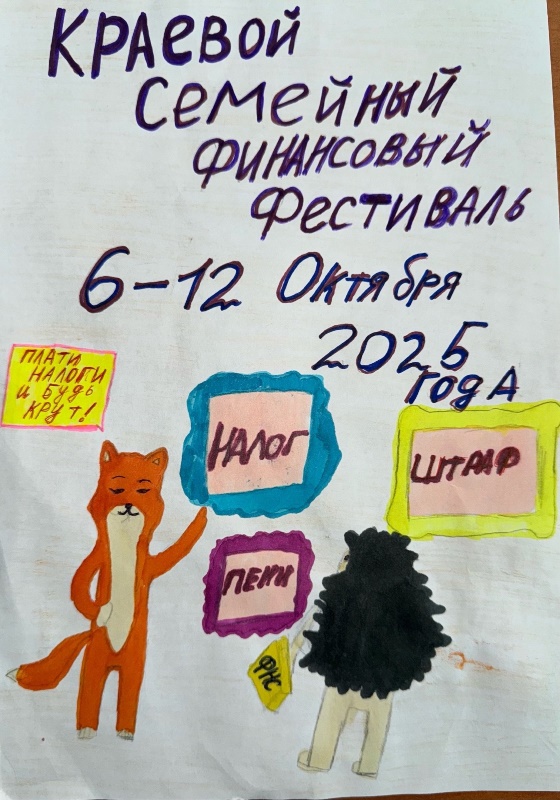 Краевой
семейный
финансовый
фестиваль
6-12 Октября
2025
года
ПЛАТИ
НАЛОГИ
И БУДЬ
КРУТ!
НАЛОГ
ШТРАФ
ПЕНИ
ФНС